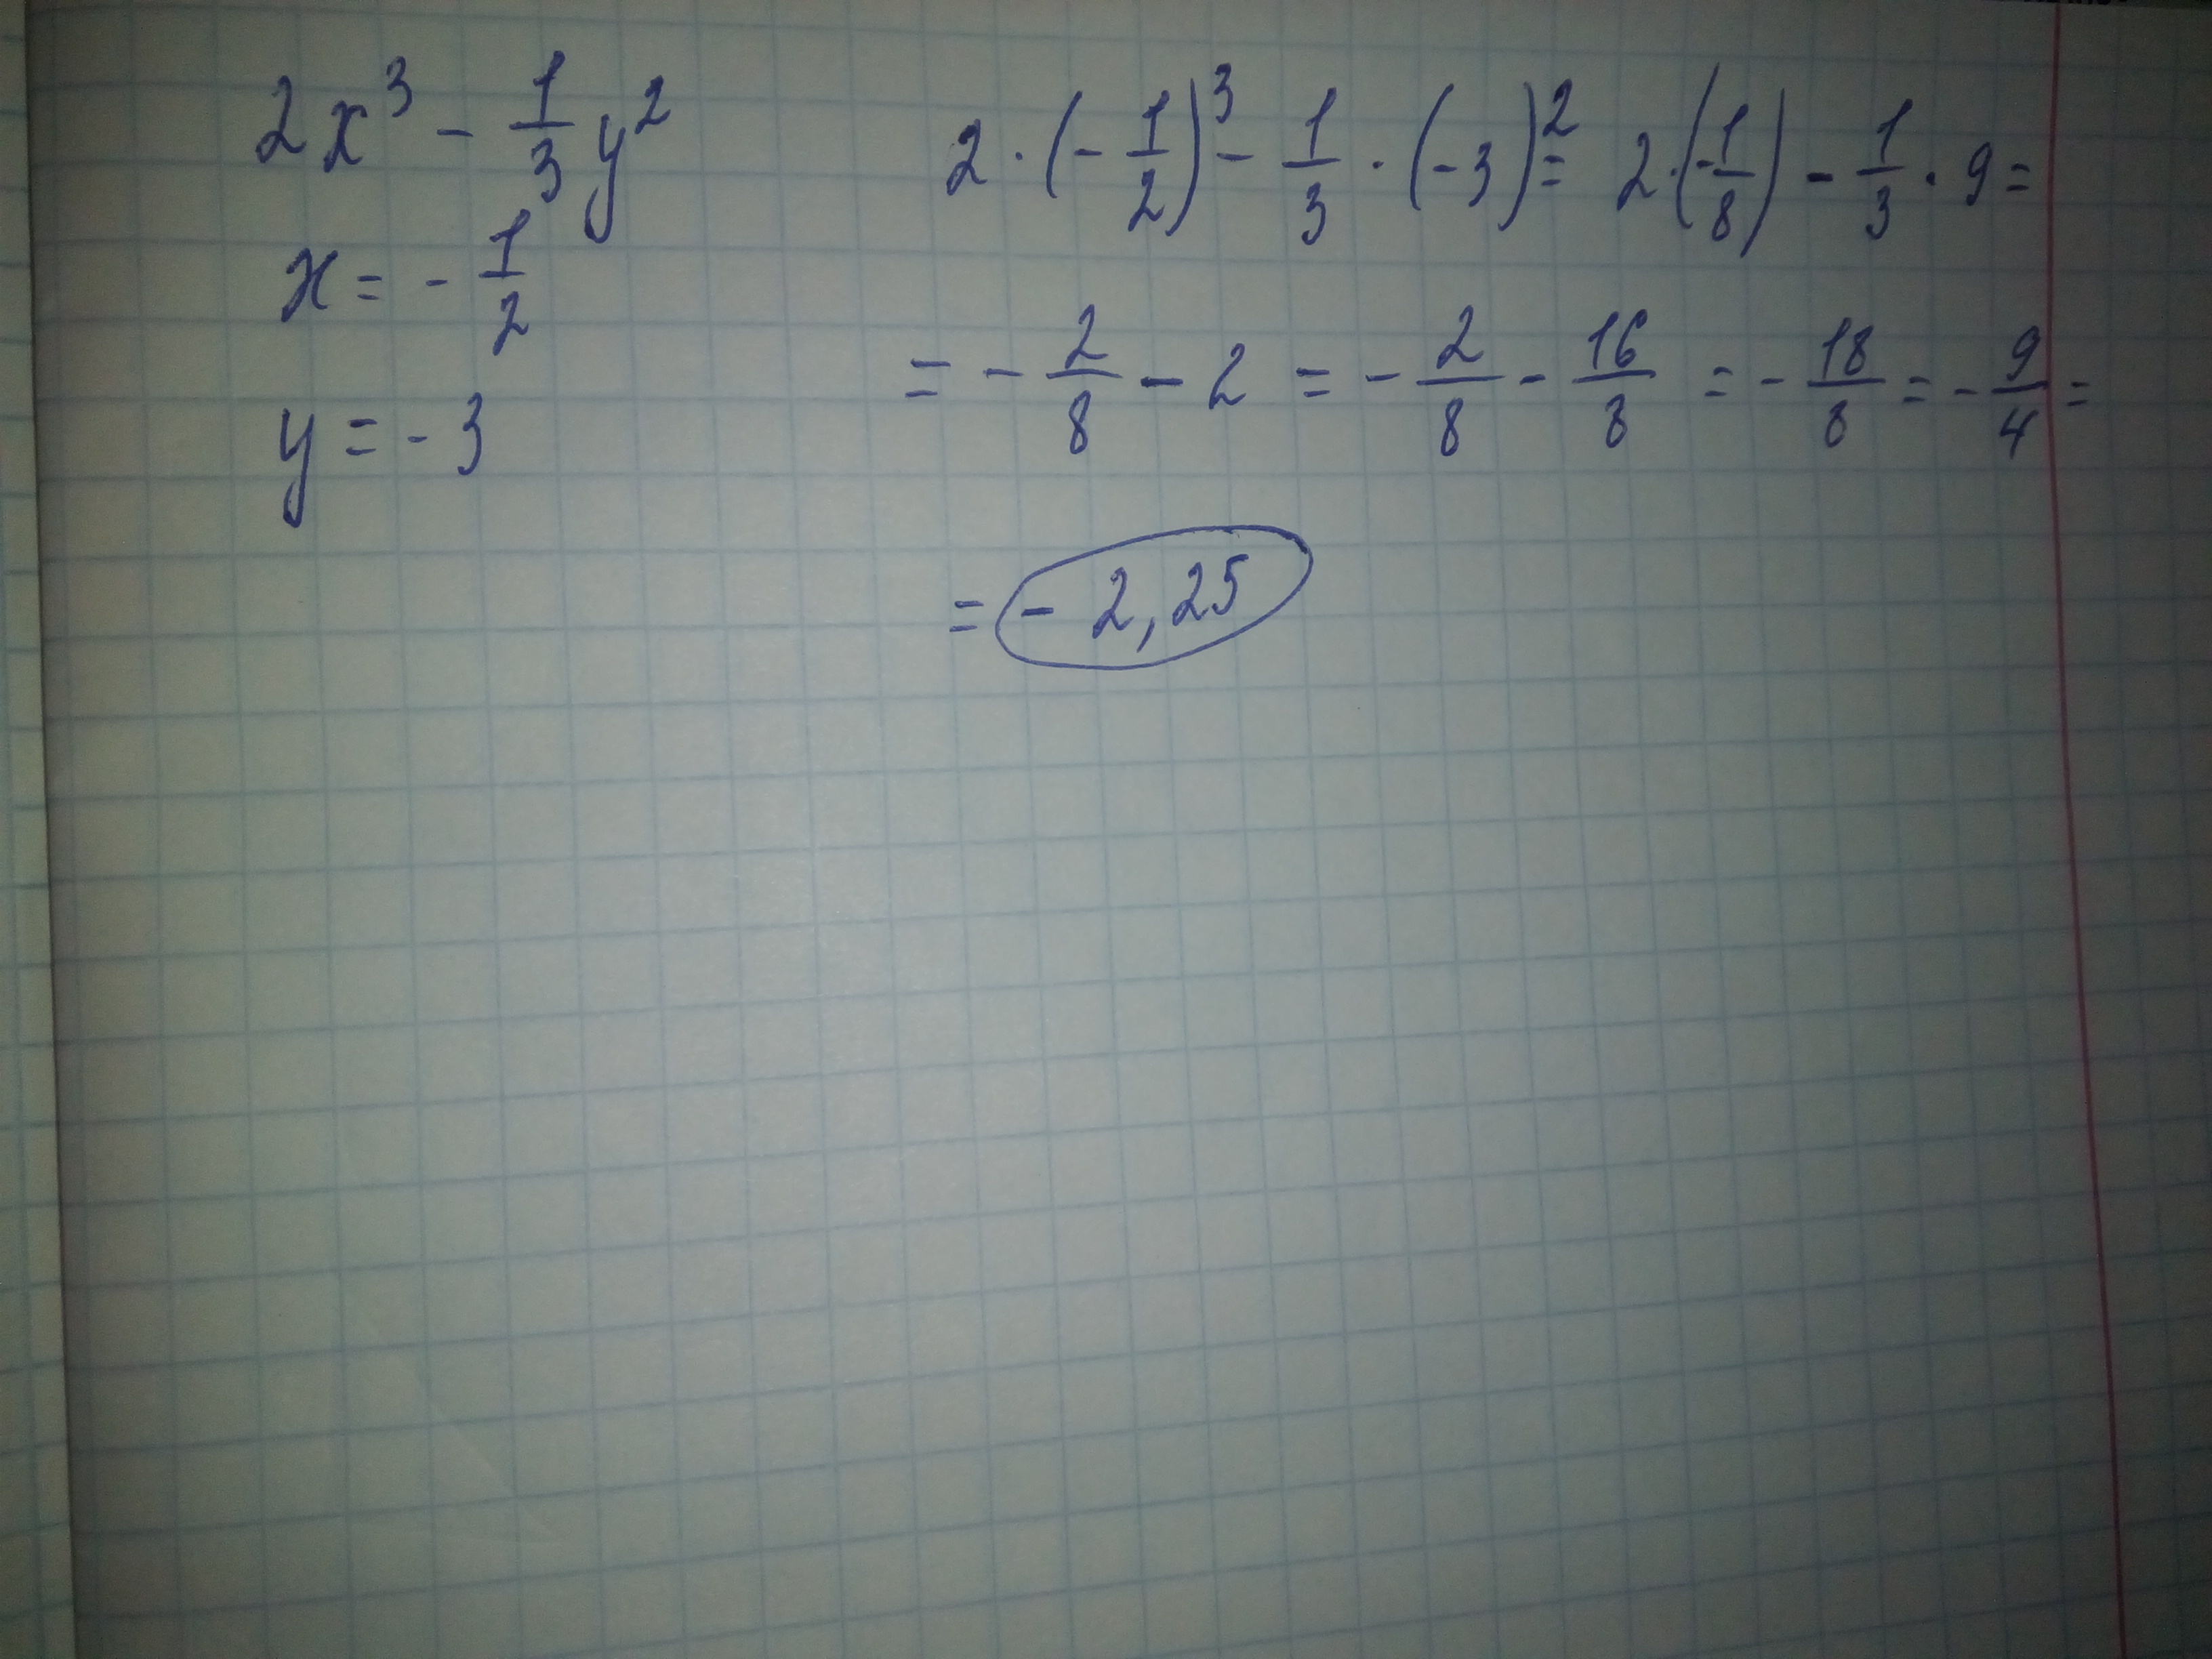 2x³ - 1/3 y²
x = - 1/2
y = - 3
2 · (- 1/2)³ - 1/3 · (-3)² = 2 · (- 1/8) - 1/3 · 9 =
= - 2/8 - 2 = - 2/8 - 16/8 = - 18/8 = - 9/4 =
= - 2,25